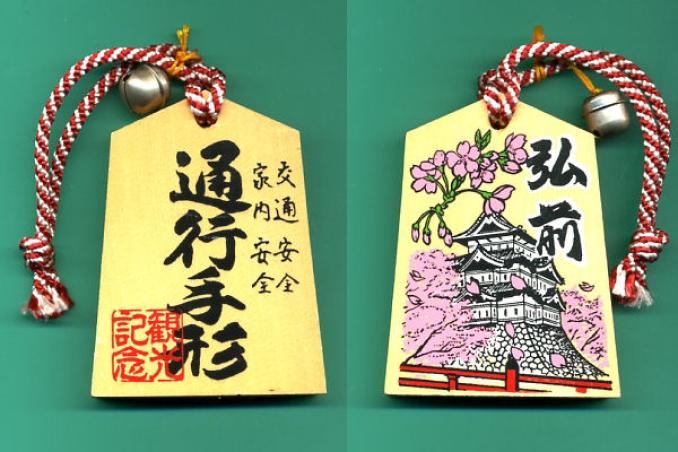 交通安全
家内安全
通行手形
観光
記念
弘前